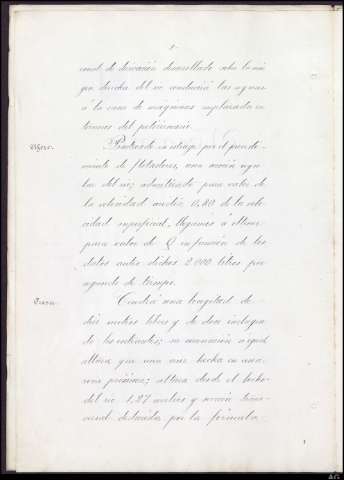 canal de derivación desarrollado sobre la mar
gen derecha del rio conducirá las aguas
á la casa de máquinas emplazada en
terrenos del peticionario.
Aforo. Practicado un aforo por el procedi
miento de flotadores, una sección regu
lar del rio; admitiendo para valor de
la velocidad media 0,80 de la velo
cidad superficial, llegamos á obtener
para valor de Q en función de los
datos antes dichos 2.000 litros por
segundo de tiempo.
Presa. Tendrá una longitud de
diez metros libres y de doce incluyen
do los estribos; su coronación á igual
altura que una cruz hecha en una
roca próxima; altura desde el lecho
del rio 1,27 metros y sección
deducida por la fórmula